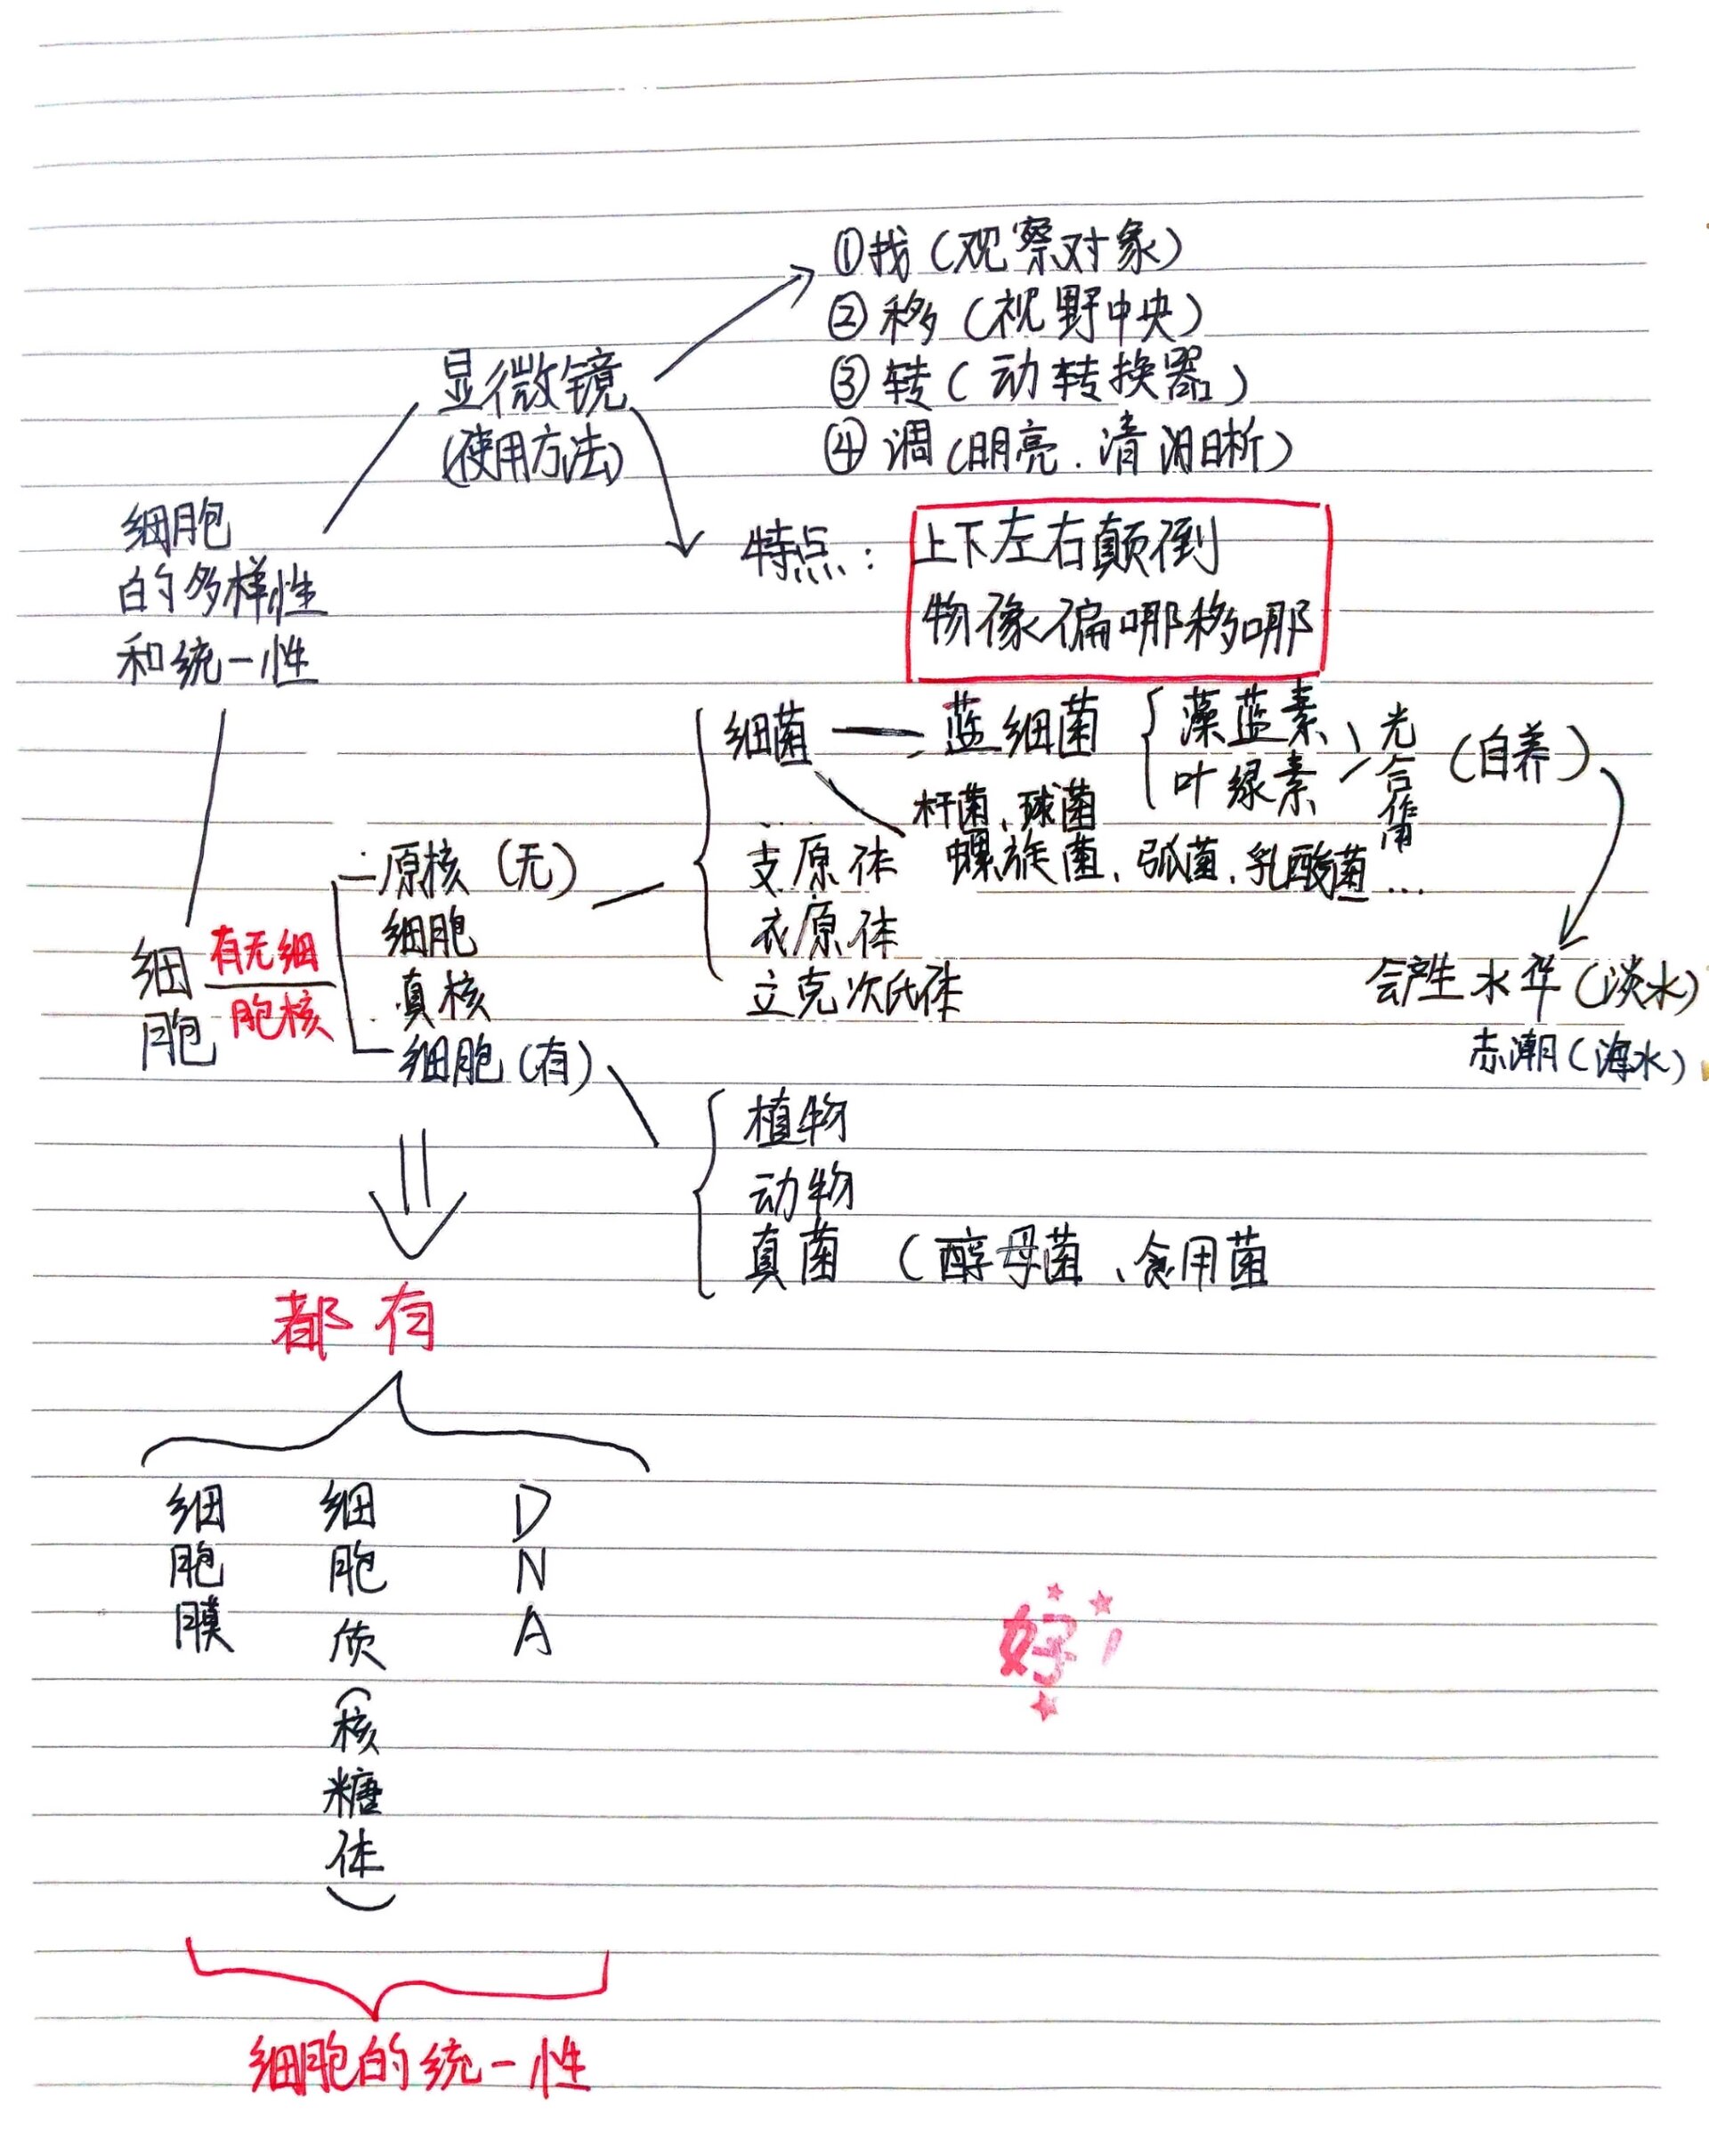 ①找（观察对象）
②移（视野中央）
③转（动转换器）
④调（明亮.清晰）
显微镜
（使用方法）
特点：
上下左右颠倒
物像偏哪移哪
细胞
的多样性
和统一性
细菌
蓝细菌
藻蓝素
叶绿素
光合作用
（自养）
杆菌、球菌
螺旋菌、弧菌、乳酸菌…
支原体
衣原体
立克次氏体
会产生水华（淡水）
赤潮（海水）
原核（无）
细胞
真核
细胞（有）
细胞
有无细
胞核
植物
动物
真菌（酵母菌、食用菌
都有
细胞膜
细胞质（核糖体）
DNA
好！
细胞的统一性